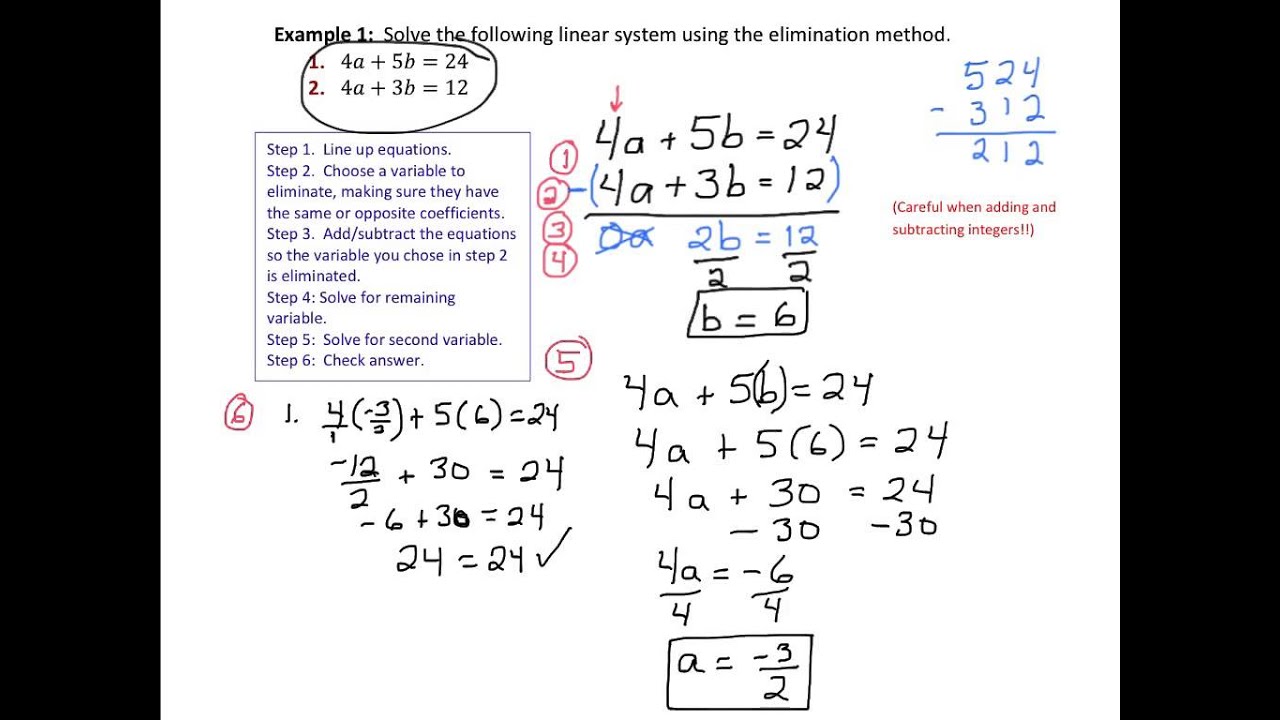 Example 1: Solve the following linear system using the elimination method.
1. 4a + 5b = 24
2. 4a + 3b = 12
Step 1. Line up equations.
Step 2. Choose a variable to
eliminate, making sure they have
the same or opposite coefficients.
Step 3. Add/subtract the equations
so the variable you chose in step 2
is eliminated.
Step 4: Solve for remaining
variable.
Step 5: Solve for second variable.
Step 6: Check answer.
↓
① 4a + 5b = 24
② -(4a + 3b = 12)
③ 0a 2b = 12
④ 2 2
b = 6
524
- 312
212
(Careful when adding and
subtracting integers!!)
⑤
4a + 5(b) = 24
4a + 5(6) = 24
4a + 30 = 24
- 30 -30
4a = -6
4 4
a = -3
2
⑥ 1. 4/1(-3/2) + 5(6) = 24
-12/2 + 30 = 24
-6 + 30 = 24
24 = 24 ✓